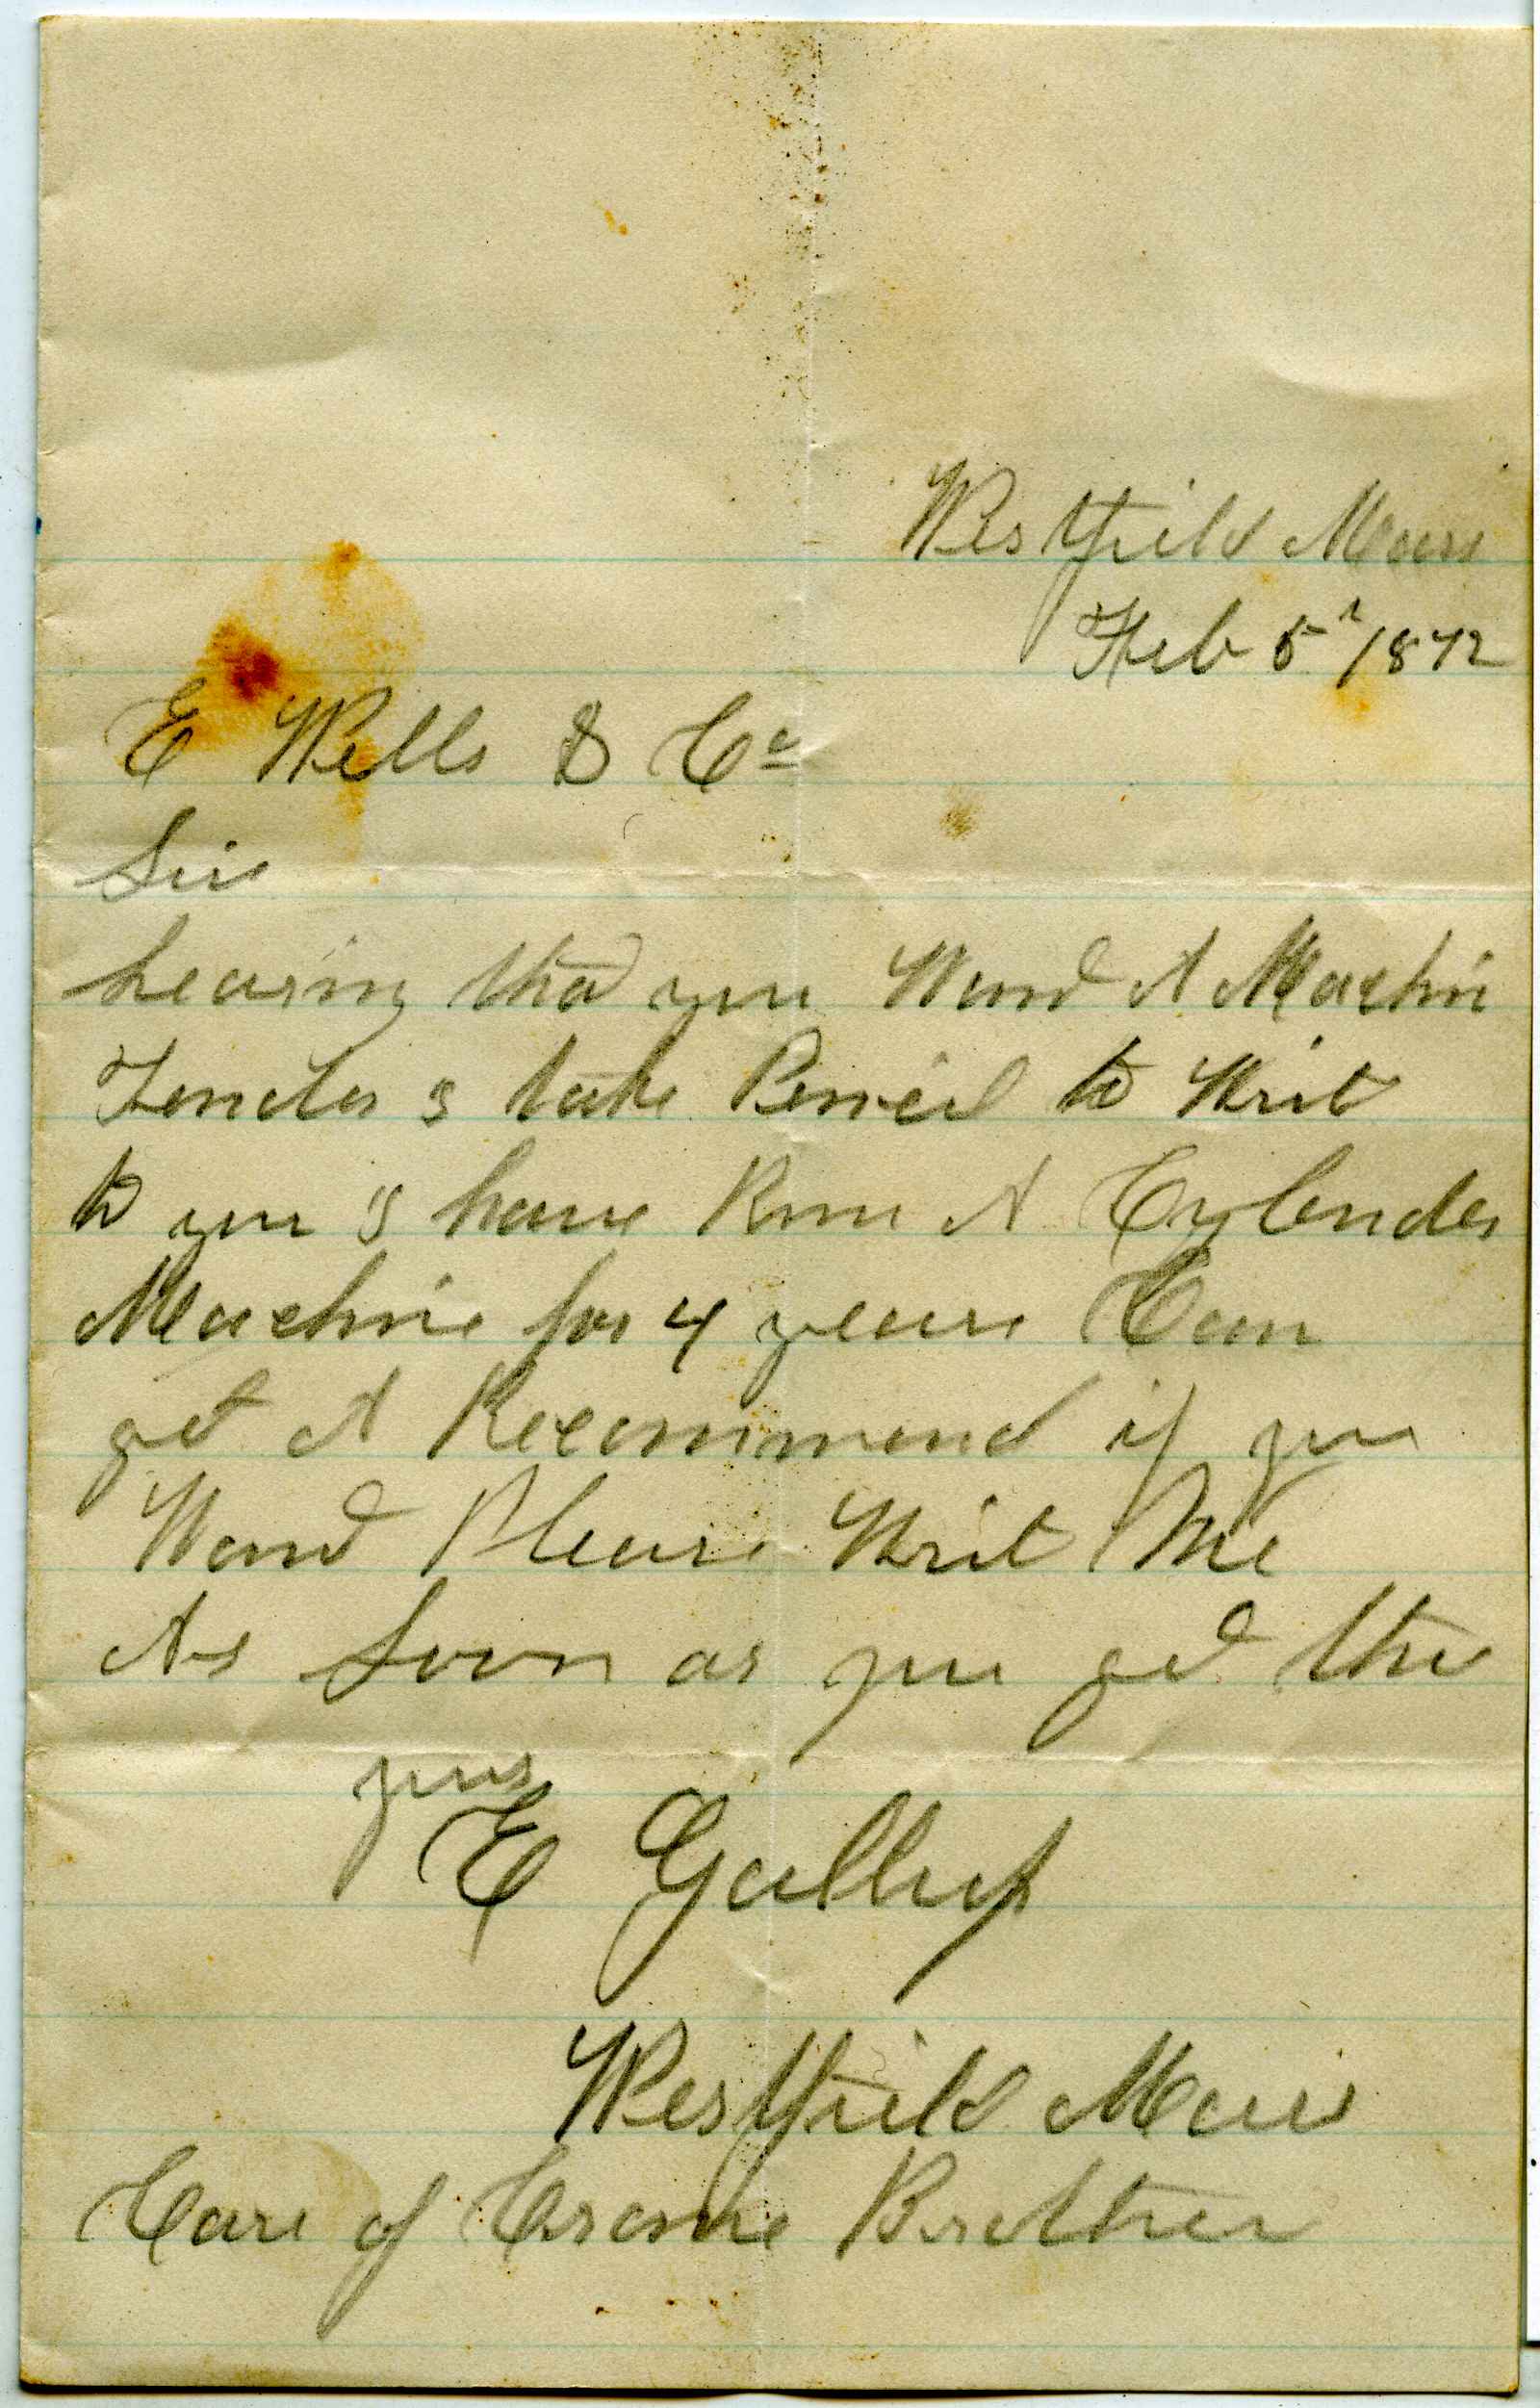 Westfield Mass
Feb 5 1872
E Wells & Co
Sir
hearing that you Wand A Machin
Tender I take Pencil to Writ
to you I have Run A Cylender
Machine for 4 years Can
get A Recommend if you
Wand Please Writ Me
As Soon as you get this
yours
E Gallup
Westfield Mass
Care of Crane Brother